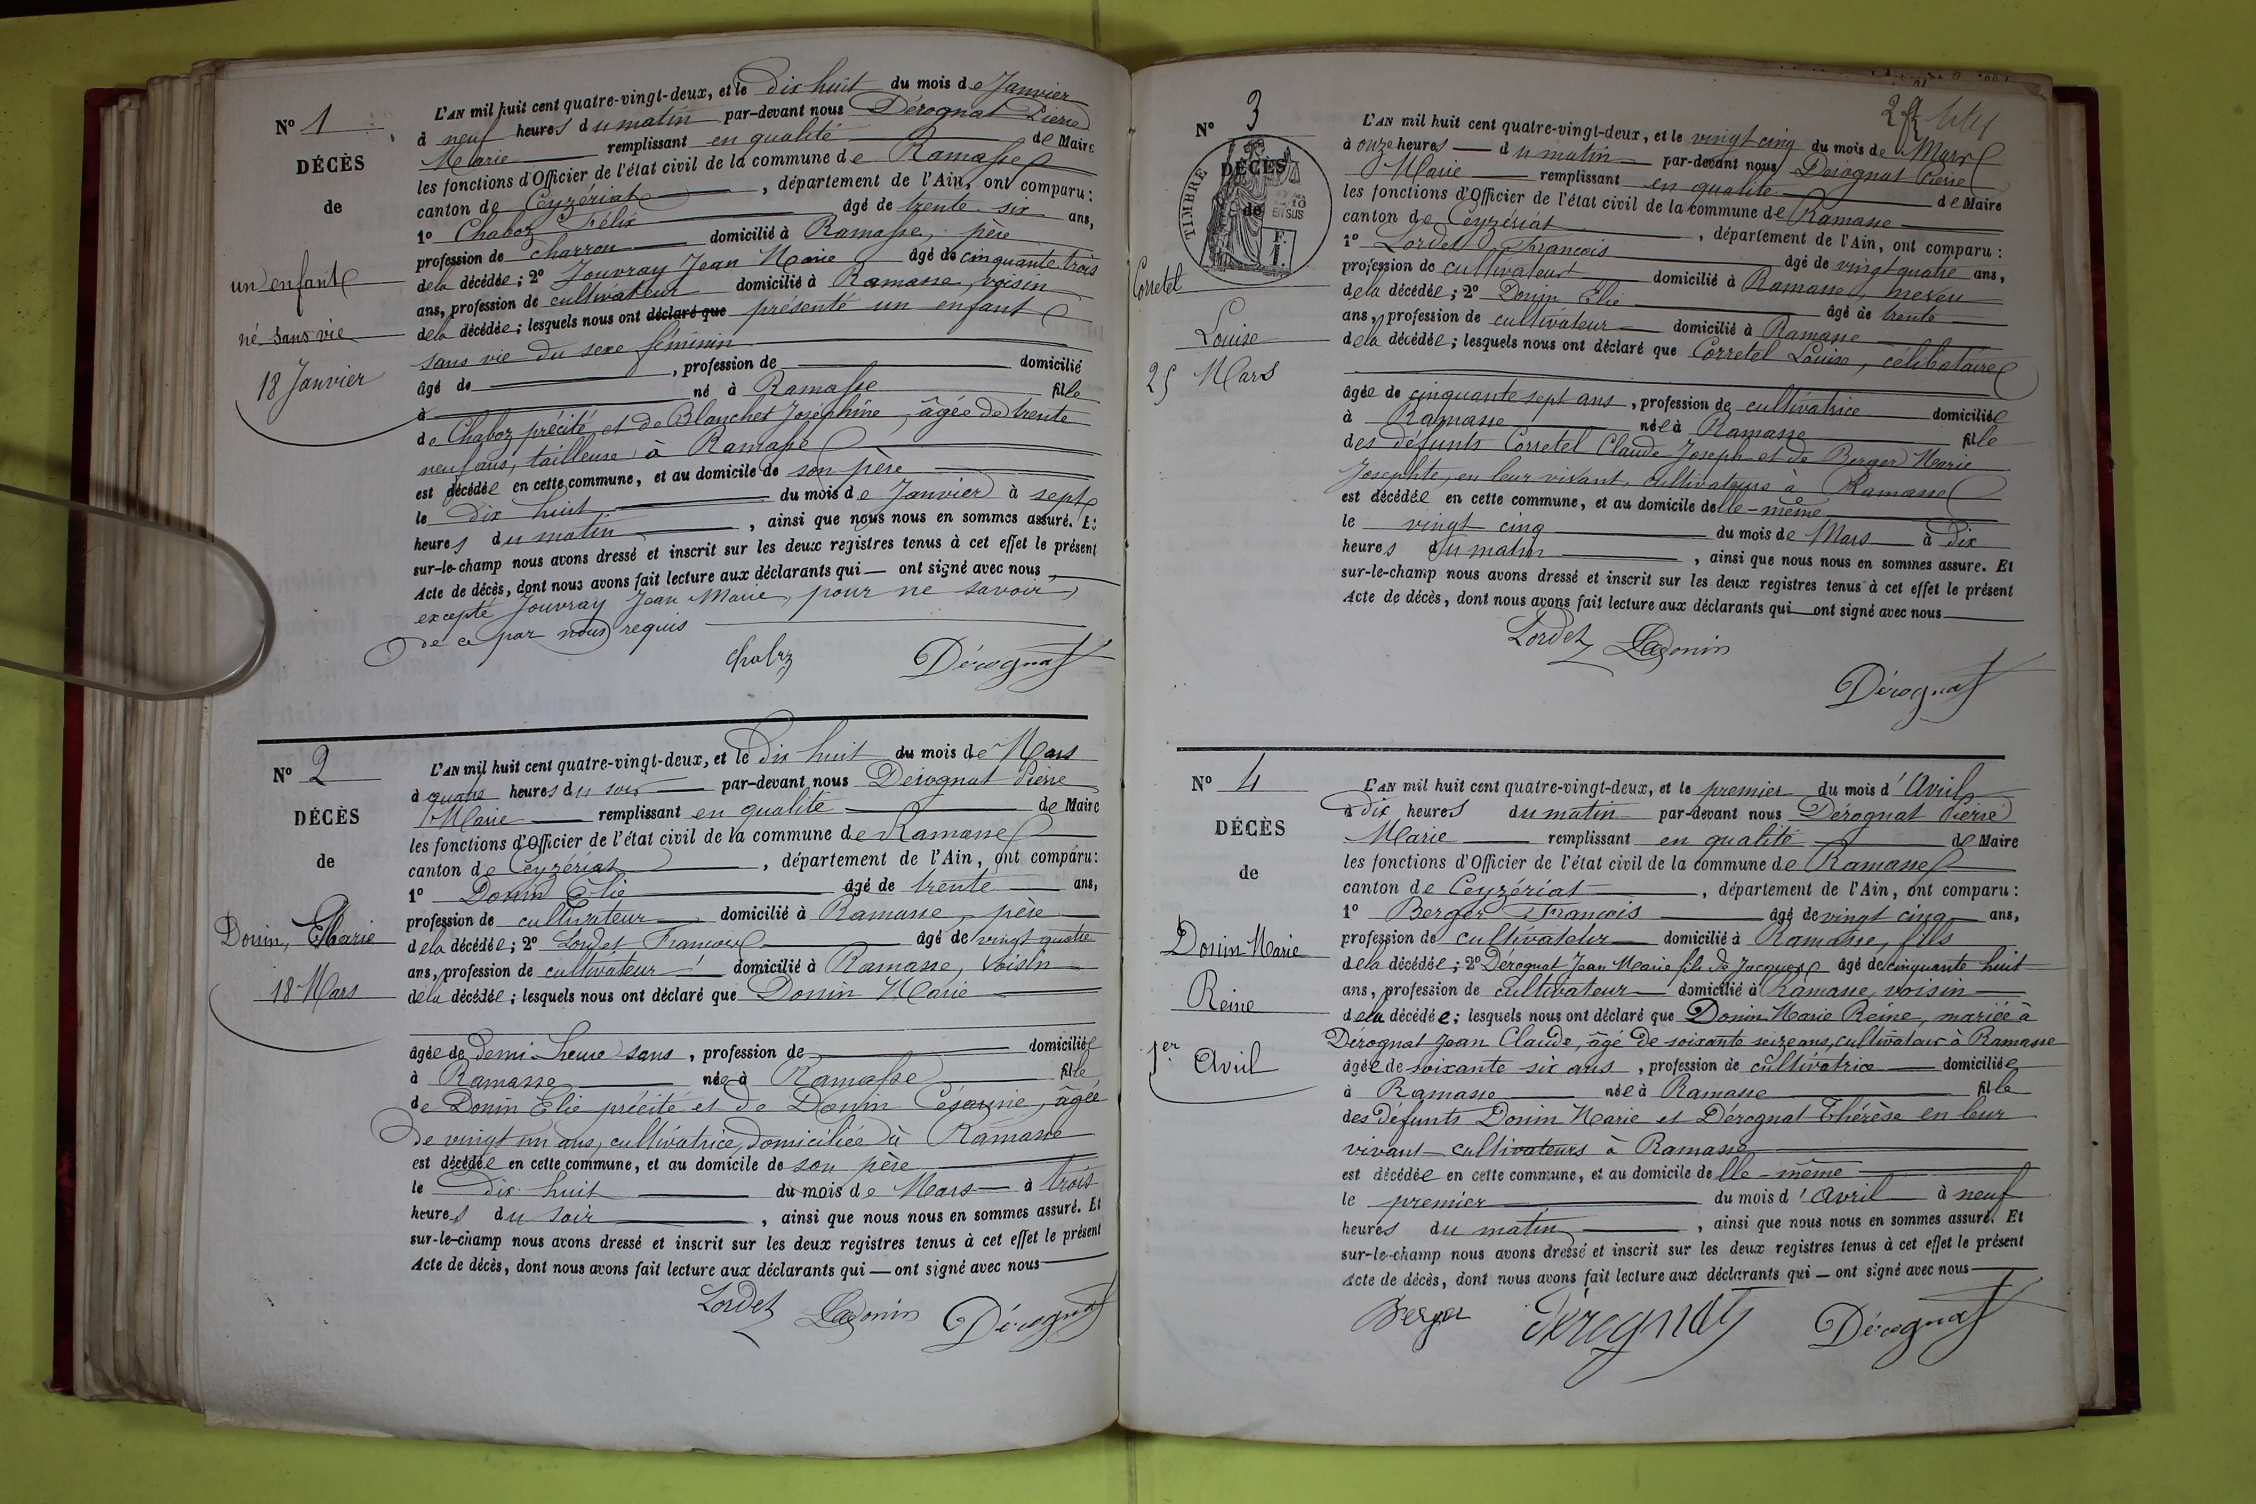 N° 1
DÉCÈS
de
un enfant
né sans vie
18 Janvier
L'AN mil huit cent quatre-vingt-deux, et le dix huit du mois de Janvier
à neuf heures du matin par-devant nous Dérognat Pierre
Marie remplissant en qualité de Maire
les fonctions d'Officier de l'état civil de la commune de Ramasse
canton de Ceyzériat, département de l'Ain, ont comparu:
1° Chaboz Félix âgé de trente-six ans,
profession de charron domicilié à Ramasse, père
de la décédée; 2° Jouvray Jean Marie âgé de cinquante trois
ans, profession de cultivateur domicilié à Ramasse, voisin
de la décédée; lesquels nous ont déclaré que présenté un enfant
sans vie du sexe féminin
âgé de , profession de domicilié
à né à Ramasse fille
de Chaboz précité et de Blanchet Joséphine, âgée de trente
neuf ans, tailleuse à Ramasse
est décédée en cette commune, et au domicile de son père
le dix huit du mois de Janvier à sept
heures du matin, ainsi que nous nous en sommes assuré. Et
sur-le-champ nous avons dressé et inscrit sur les deux registres tenus à cet effet le présent
Acte de décès, dont nous avons fait lecture aux déclarants qui — ont signé avec nous,
excepté Jouvray Jean Marie, pour ne savoir,
de ce par nous requis
Chaboz Dérognat
N° 2
DÉCÈS
de
Donin, Marie
18 Mars
L'AN mil huit cent quatre-vingt-deux, et le dix huit du mois de Mars
à quatre heures du soir par-devant nous Dérognat Pierre
Marie remplissant en qualité de Maire
les fonctions d'Officier de l'état civil de la commune de Ramasse
canton de Ceyzériat, département de l'Ain, ont comparu:
1° Donin Élie âgé de trente ans,
profession de cultivateur domicilié à Ramasse, père
de la décédée; 2° Lordet François âgé de vingt quatre
ans, profession de cultivateur domicilié à Ramasse, voisin
de la décédée; lesquels nous ont déclaré que Donin Marie
âgée de demi-heure sans, profession de domiciliée
à Ramasse née à Ramasse fille
de Donin Élie précité et de Donin Césarine, âgée
de vingt un ans, cultivatrice, domiciliée à Ramasse
est décédée en cette commune, et au domicile de son père
le dix huit du mois de Mars à trois
heures du soir, ainsi que nous nous en sommes assuré. Et
sur-le-champ nous avons dressé et inscrit sur les deux registres tenus à cet effet le présent
Acte de décès, dont nous avons fait lecture aux déclarants qui — ont signé avec nous
Lordet Donin Dérognat
N° 3
TIMBRE
DÉCÈS
de
Corretel
Louise
25 Mars
L'AN mil huit cent quatre-vingt-deux, et le vingt cinq du mois de Mars
à onze heures du matin par-devant nous Dérognat Pierre
Marie remplissant en qualité de Maire
les fonctions d'Officier de l'état civil de la commune de Ramasse
canton de Ceyzériat, département de l'Ain, ont comparu:
1° Lordet François âgé de vingt quatre ans,
profession de cultivateur domicilié à Ramasse, neveu
de la décédée; 2° Donin Élie âgé de trente
ans, profession de cultivateur domicilié à Ramasse
de la décédée; lesquels nous ont déclaré que Corretel Louise, célibataire
âgée de cinquante sept ans, profession de cultivatrice domiciliée
à Ramasse née à Ramasse fille
des défunts Corretel Claude Joseph et de Berger Marie
Josephte, en leur vivant, cultivateurs à Ramasse
est décédée en cette commune, et au domicile d'elle-même
le vingt cinq du mois de Mars à dix
heures du matin, ainsi que nous nous en sommes assuré. Et
sur-le-champ nous avons dressé et inscrit sur les deux registres tenus à cet effet le présent
Acte de décès, dont nous avons fait lecture aux déclarants qui — ont signé avec nous
Lordet Donin
Dérognat
N° 4
DÉCÈS
de
Donin Marie
Reine
1er Avril
L'AN mil huit cent quatre-vingt-deux, et le premier du mois d'Avril
à dix heures du matin par-devant nous Dérognat Pierre
Marie remplissant en qualité de Maire
les fonctions d'Officier de l'état civil de la commune de Ramasse
canton de Ceyzériat, département de l'Ain, ont comparu:
1° Berger François âgé de vingt cinq ans,
profession de cultivateur domicilié à Ramasse, fils
de la décédée; 2° Dérognat Jean Marie fils de Jacques âgé de cinquante huit
ans, profession de cultivateur domicilié à Ramasse, voisin
de la décédée; lesquels nous ont déclaré que Donin Marie Reine, mariée à
Dérognat Jean Claude, âgé de soixante seize ans, cultivateur à Ramasse
âgée de soixante six ans, profession de cultivatrice domiciliée
à Ramasse née à Ramasse fille
des défunts Donin Marie et Dérognat Thérèse en leur
vivant cultivateurs à Ramasse
est décédée en cette commune, et au domicile d'elle-même
le premier du mois d'Avril à neuf
heures du matin, ainsi que nous nous en sommes assuré. Et
sur-le-champ nous avons dressé et inscrit sur les deux registres tenus à cet effet le présent
Acte de décès, dont nous avons fait lecture aux déclarants qui — ont signé avec nous
Berger Dérognat Dérognat